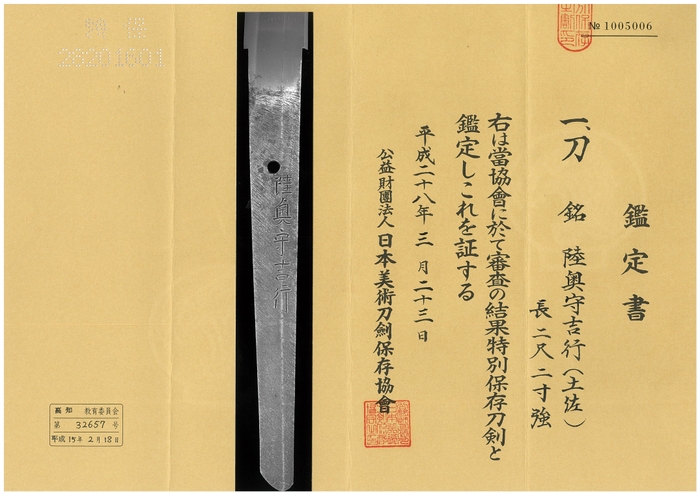 № 1005006
鑑定書
一、刀 銘 陸奥守吉行(土佐)
長二尺二寸強
右は當協會に於て審査の結果特別保存刀剣と
鑑定しこれを証する
平成二十八年三月二十三日
公益財團法人 日本美術刀劍保存協會
陸奥守吉行
特保
28201001
高知 教育委員会
第 32657 号
平成15年2月18日